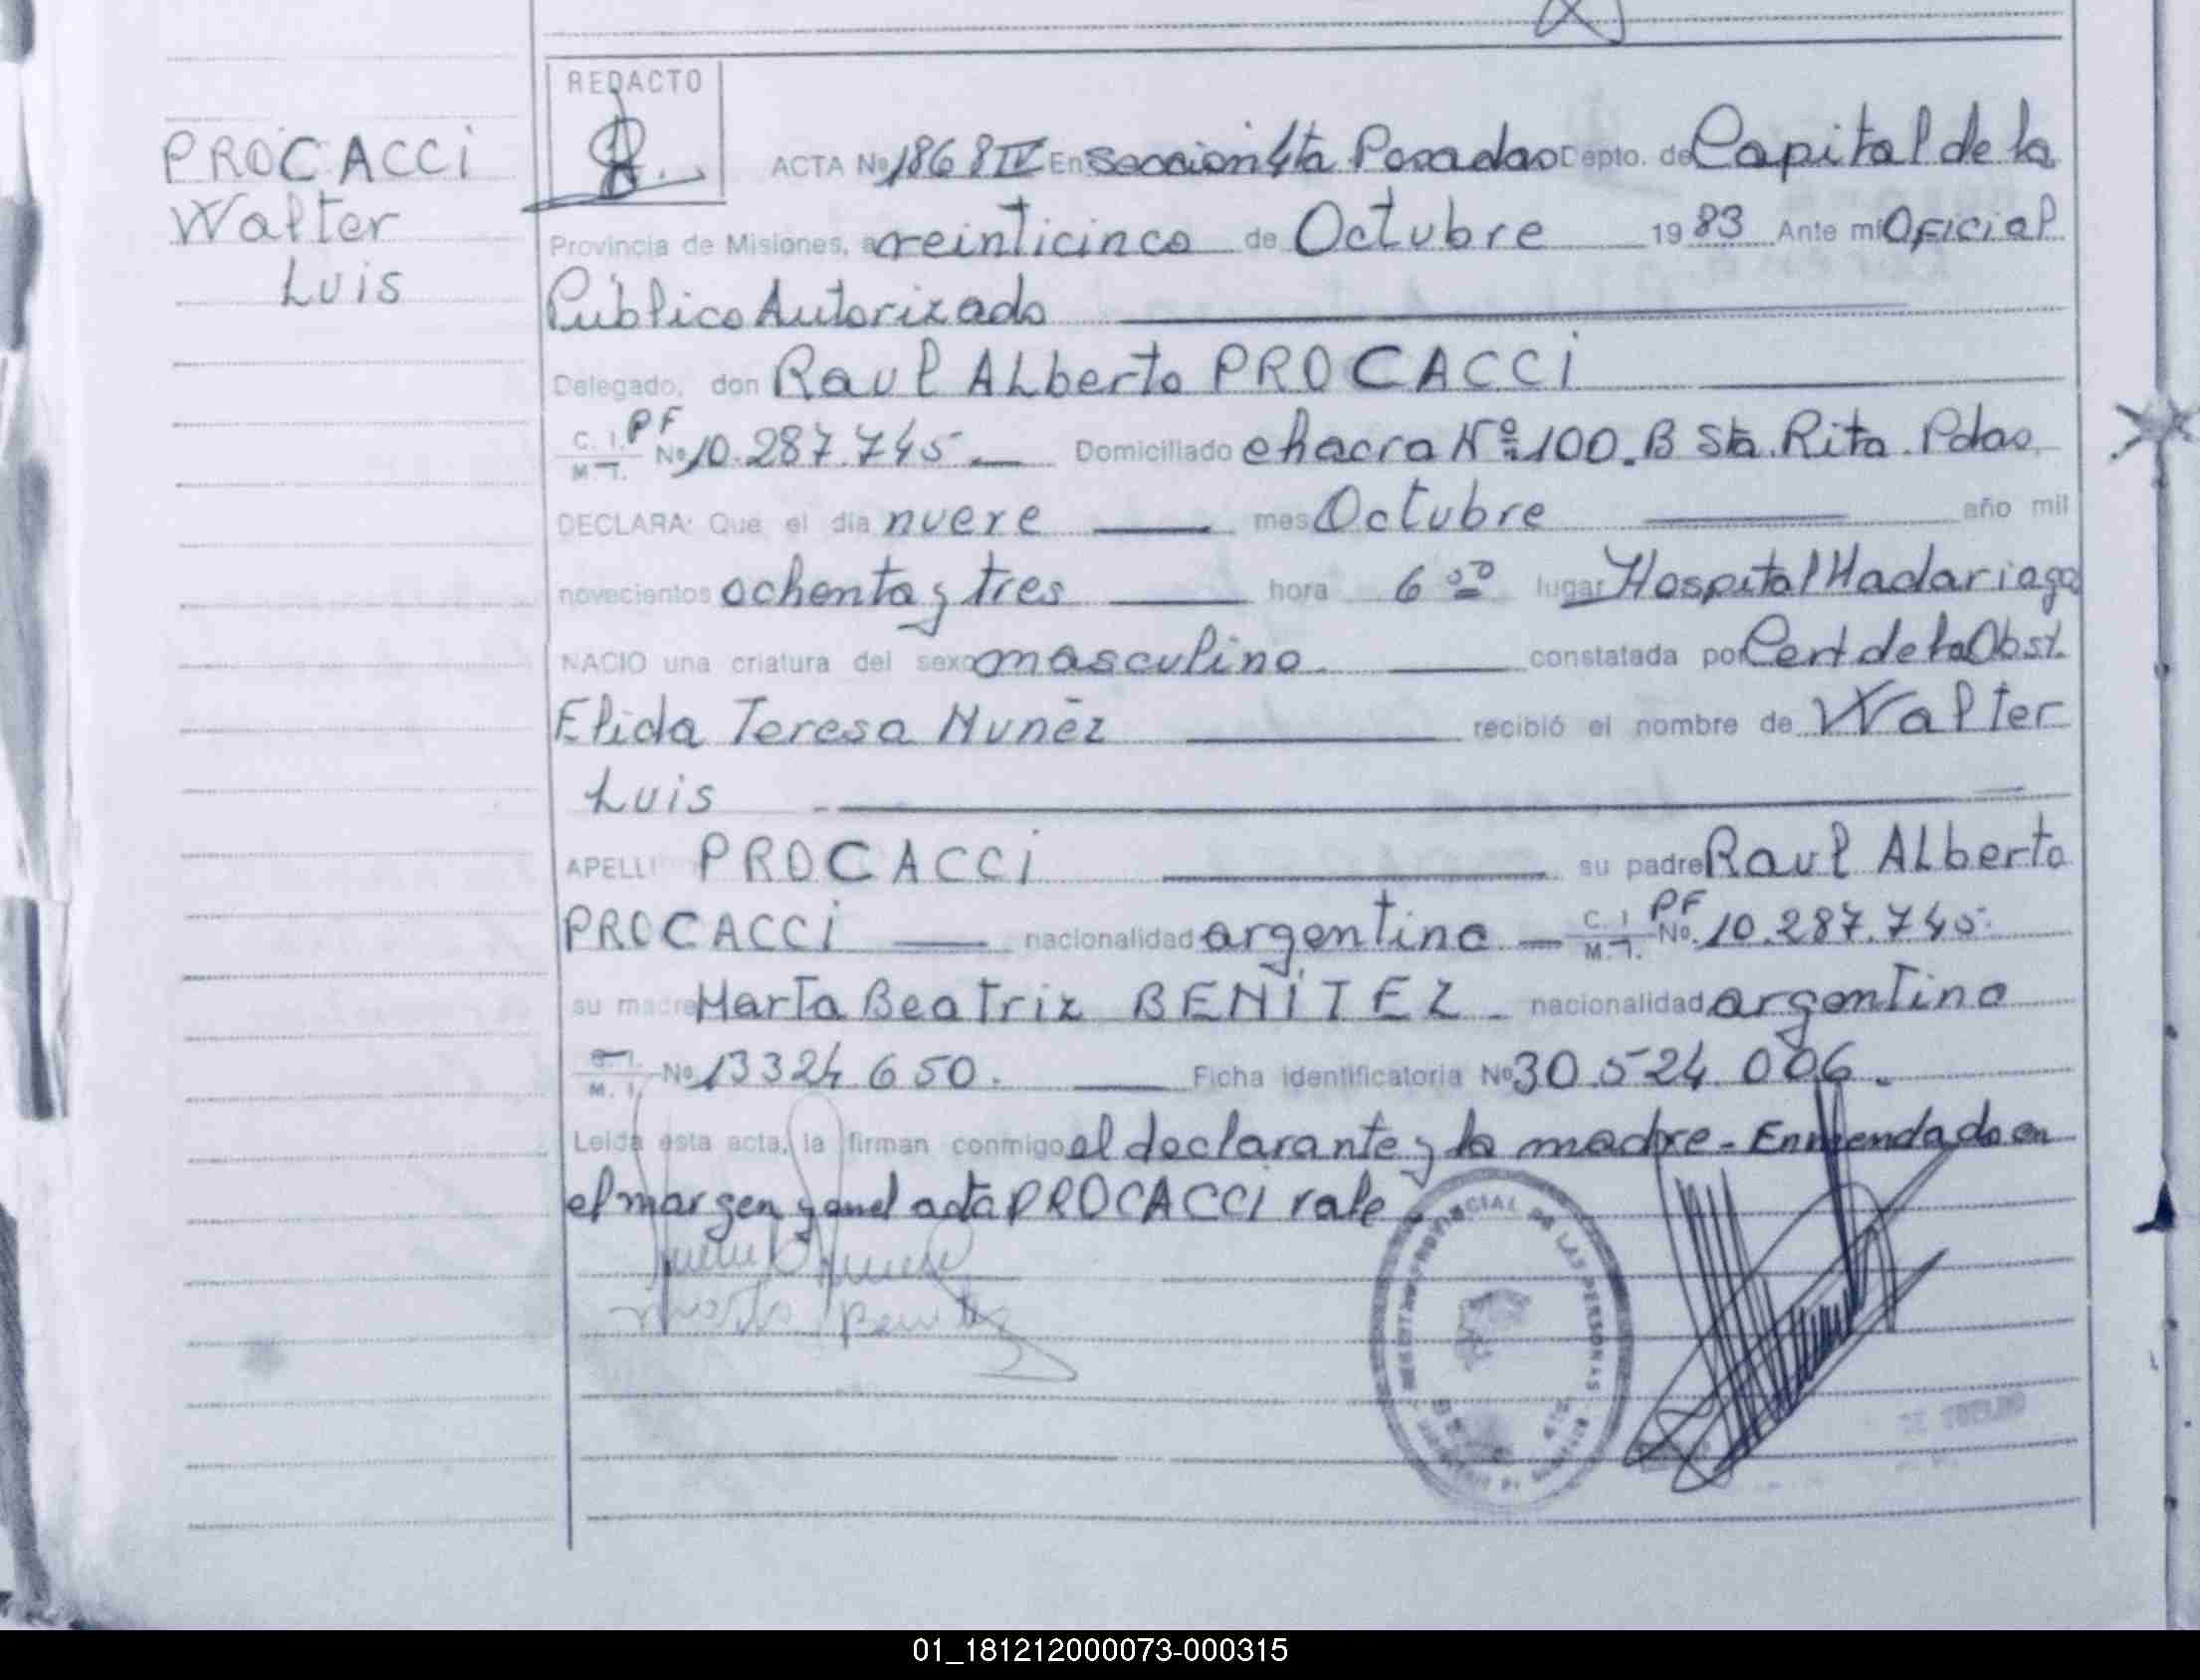 REDACTO
PROCACCI
Walter
Luis
ACTA Nº 1868 IV En Seccion 4ta Posadas Depto. de Capital de la
Provincia de Misiones, a veinticinco de Octubre 1983 Ante mi Oficial
Público Autorizado
Delegado, don Raul Alberto PROCACCI
C. I. M. I. PF Nº 10.287.745 Domiciliado chacra Nº 100. B Sta. Rita. Pdas.
DECLARA: Que el día nueve mes Octubre año mil
novecientos ochenta y tres hora 6 00 lugar Hospital Madariaga
NACIO una criatura del sexo masculino constatada por Cert de la Obst.
Elida Teresa Nuñez recibió el nombre de Walter
Luis
APELLI PROCACCI su padre Raul Alberto
PROCACCI nacionalidad argentina C. I. M. I. PF No. 10.287.745.
su madre Marta Beatriz BENÍTEZ nacionalidad argentina
C. I. M. I. Nº 13324.650. Ficha identificatoria Nº 30.524.006.
Leida esta acta, la firman conmigo el declarante y la madre - Enmendado en
el margen y en el acta PROCACCI vale
Marta Benitez
PROVINCIAL DE LAS PERSONAS
01_181212000073-000315